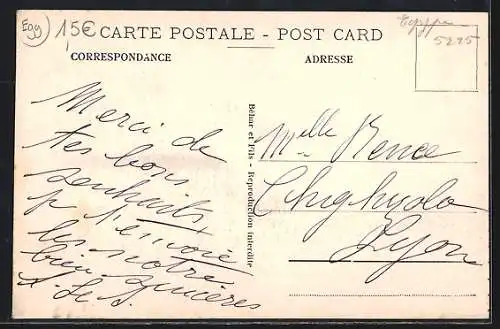 Egg
15€
CARTE POSTALE - POST CARD
Egypte
5295
CORRESPONDANCE
ADRESSE
Merci de
tes bons
souhaits,
je t'envoie
les notre
bien sincères
Béhar et Fils - Reproduction interdite
Melle Rence
Lyon